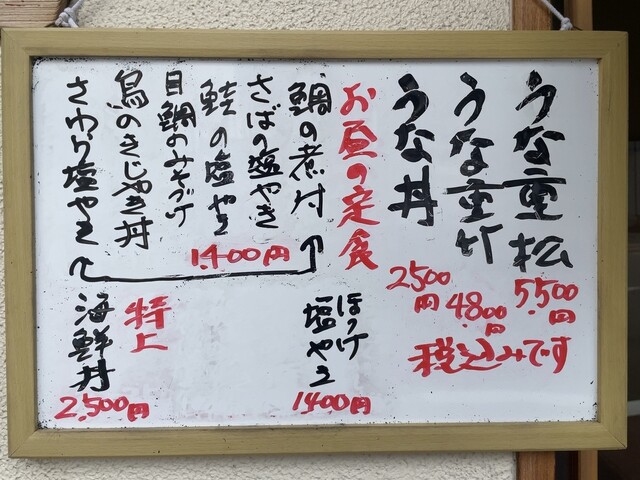 うな重松
5,500円
うな重竹
4,800円
うな丼
2500円
税込みです
お昼の定食
鯛の煮付
さばの塩やき
鮭の塩やき
目鯛のみそづけ
鳥のきじやき丼
さわら塩やき
1,400円
ほっけ塩やき
1400円
特上
海鮮丼
2,500円